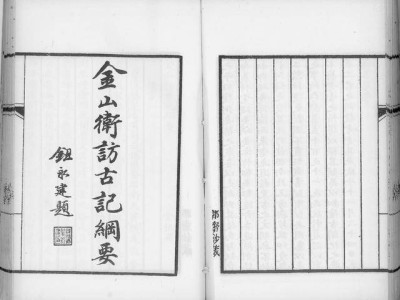 金山衛訪古記綱要
鈕永建題